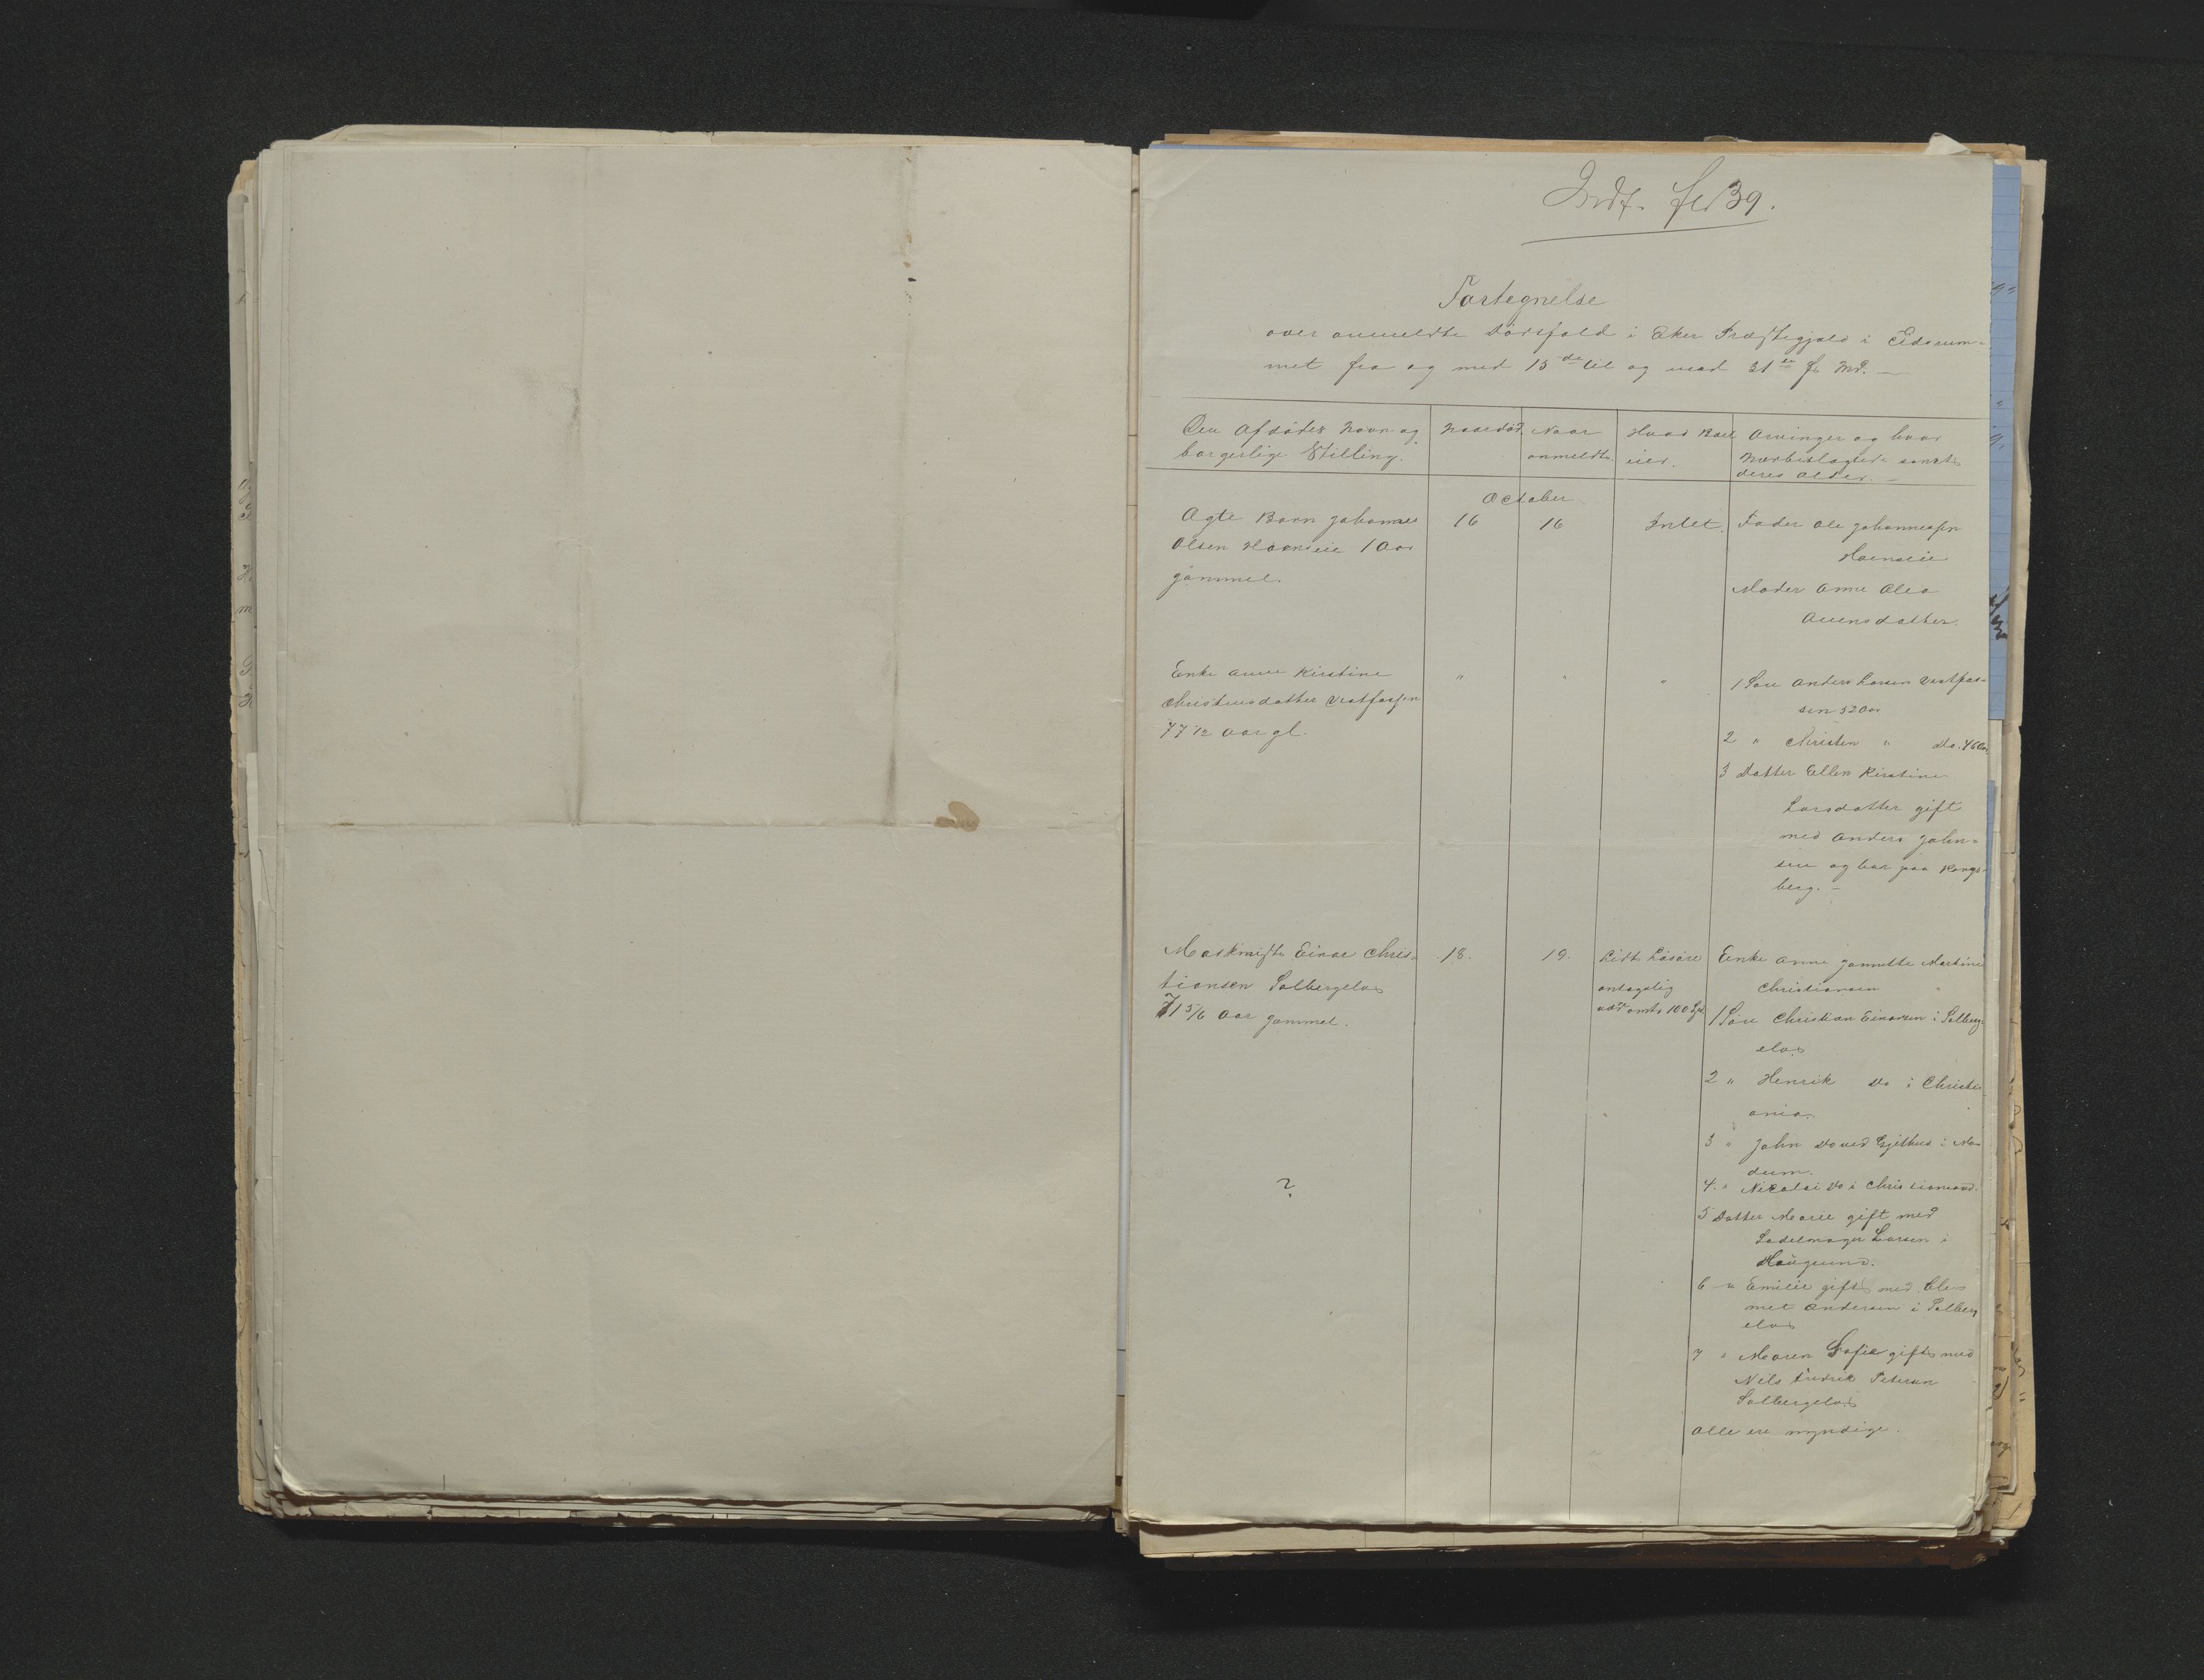 Indf. fol 39.
Fortegnelse
over anmeldte Dødsfald i Eker Præstegjæld i Tidsrum-
met fra og med 15de til og med 31te f. Md. —
Den Afdødes Navn og
borgerlige Stilling.
Naar død.
Naar
anmeldt.
Hvad Boet
eier.
Arvinger og hvor
Nærbeslægtede samt
deres Alder. —
October
Ægte Barn Johannes
Olsen Hoenseie 1 Aar
gammel.
16
16
Intet.
Fader Ole Johannessen
Hoenseie
Moder Anne Olea
Auensdatter.
Enke Anne Kirstine
Christensdatter Vestfossen
77 1/2 Aar gl.
"
"
"
1 Søn Anders Larsen Vestfos-
sen 52 Aar
2 " Christen " Do. 46 Aar
3 Datter Ellen Kirstine
Larsdatter gift
med Anders John-
sen og bor paa Kongs-
berg. —
Maskmster Einar Chris-
tiansen Solbergelven
71 5/6 Aar gammel.
18.
19.
Lidt Løsøre
antagelig
omt. 100 Spd
Enke Anne Jannette Martine
Christiansen
1 Søn Christian Einarsen i Solberg-
elven
2 " Henrik Do i Christi-
ania.
3 " John Do ved Gjethus i Mo-
dum.
4. " Nicolai Do i Christiansand.
5 Datter Marie gift med
Sadelmager Larsen i
Hougsund.
6 " Emilie gift med
Andersen i Solberg
elven
7 " Maren Sofie gift med
Nils Fredrik Petersen
Solbergelven
Alle ere myndige.
?